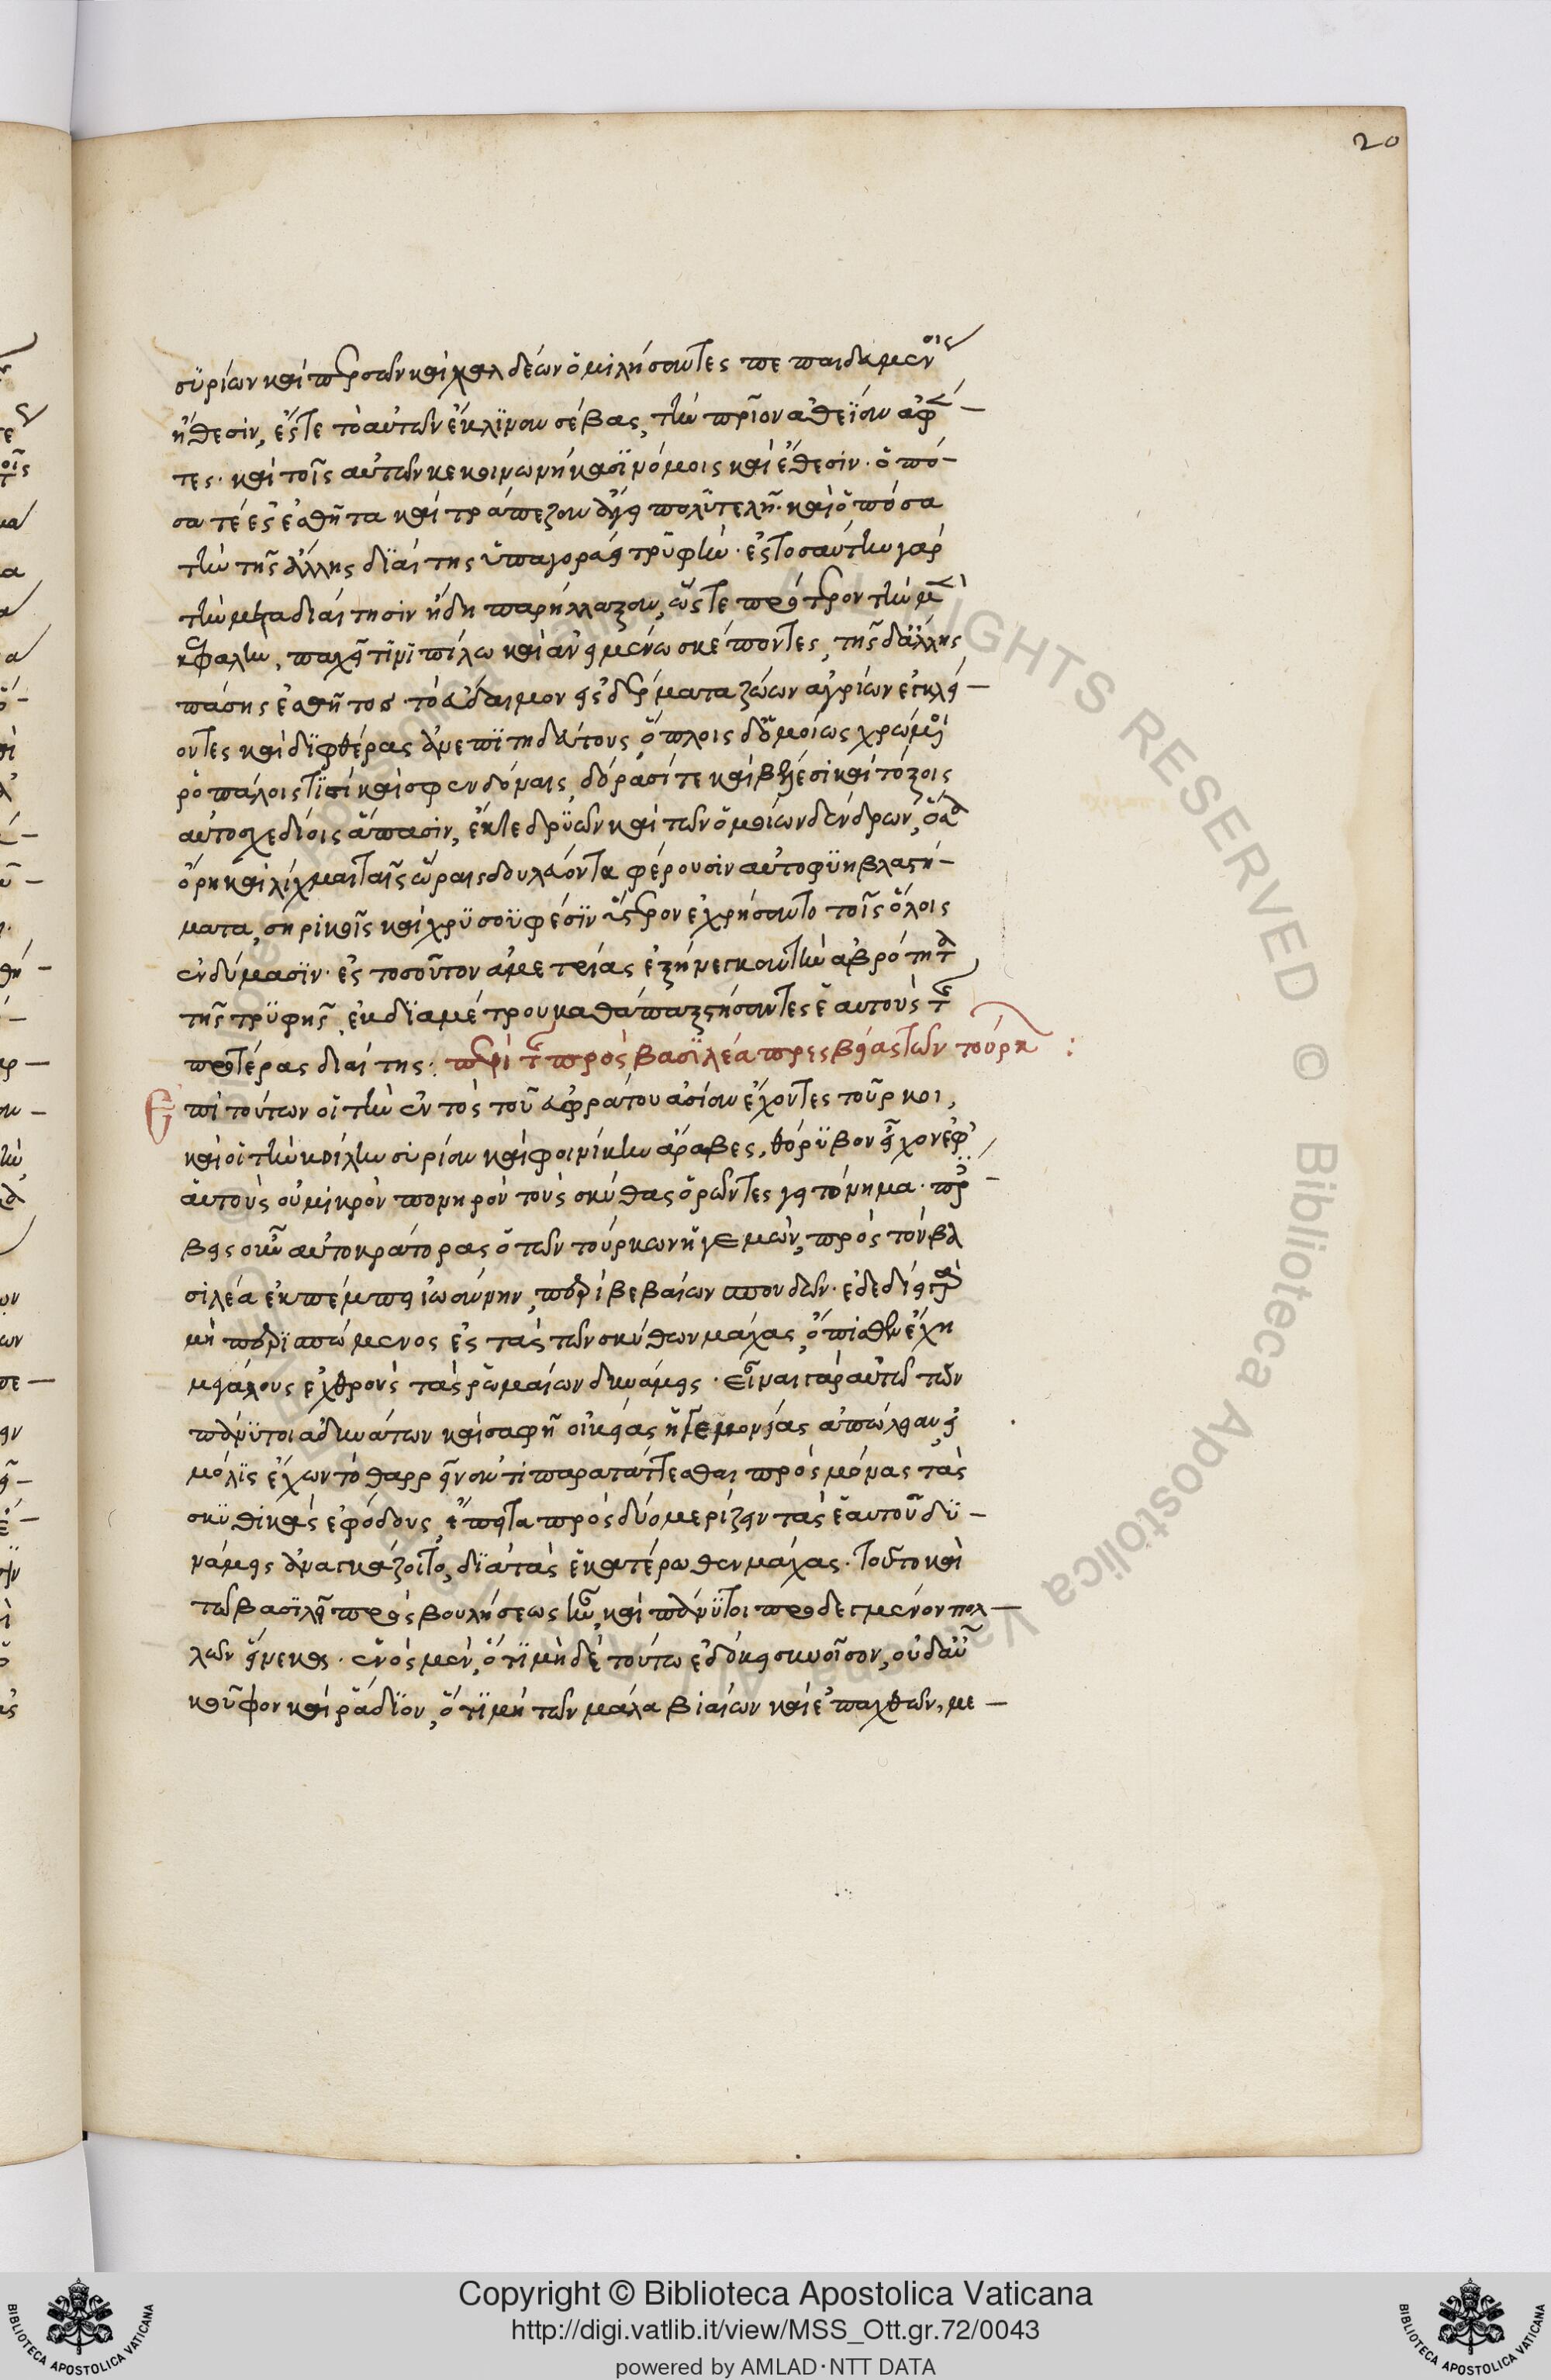 20
συρίων καὶ περσῶν καὶ χαλδέων ὁμιλήσαντες πεπαιδευμένοις
ἤθεσιν, ἔς τε τὸ αὐτῶν ἔκλιναν σέβας, τὴν πρὶν ἀθεΐαν ἀφέν-
τες. καὶ τοῖς αὐτῶν κεκοινωνήκασι νόμοις καὶ ἔθεσιν. ὁπό-
σα τέ ἐς ἐσθῆτα καὶ τράπεζαν ἄγει πολυτελῆ. καὶ ὁπόσα
τὴν τῆς ἄλλης διαίτης ὑπαγορεύει τρυφήν. ἐς τοσαύτην γὰρ
τὴν μεταδιαίτησιν ἤδη παρήλλαξαν, ὥστε πρότερον τὴν μὲν
κεφαλὴν, παχεῖ τινὶ πίλω καὶ σκέποντες, τῆς δ' ἄλλης
πάσης ἐσθῆτος τὸ εὔδαιμον εἰς δέρματα ζώων ἀγρίων ἐγκλεί-
οντες καὶ διφθέρας ἀνεπιτηδεύτους, ὅπλοις δ' ὁμοίως χρώμενοι
ῥοπάλοις τισὶ καὶ σφενδόναις, δόρασί τε καὶ βέλεσι καὶ τόξοις
αὐτοσχεδίοις ἅπασιν, ἔκ τε δρυῶν καὶ τῶν ὁμοίων δένδρων, ὅσα
ὄρη καὶ ταῖς ὥραις δουλεύοντα φέρουσιν αὐτοφυῆ βλαστή-
ματα, σηρικοῖς καὶ χρυσοϋφέσιν ὕστερον ἐχρήσαντο τοῖς ὅλοις
ἐνδύμασιν. ἐς τοσοῦτον ἀμετρίας ἐξήνεγκαν τὴν ἁβρότητα
τῆς τρυφῆς, ἐκ διαμέτρου καθάπαξ στήσαντες ἑαυτοὺς τῆς
προτέρας διαίτης. περὶ τῆς πρὸς βασιλέα πρεσβείας τῶν τούρκων:
Ἐπὶ τούτων οἱ τὴν ἐντὸς τοῦ εὐφράτου ἀσίαν ἔχοντες τοῦρκοι,
καὶ οἱ τὴν κοίλην συρίαν καὶ φοινίκην ἄραβες, θόρυβον εἶχον ἐφ'
αὑτοὺς οὐ μικρὸν πονηρὸν τοὺς σκύθας ὁρῶντες γειτόνημα. πρέσ-
βεις οὖν αὐτοκράτορας ὁ τῶν τούρκων ἡγεμὼν, πρὸς τὸν βα
σιλέα ἐκπέμπει ἰωάννην, περὶ βεβαίων σπονδῶν. ἐδεδίει γὰρ
μὴ περισπώμενος ἐς τὰς τῶν σκυθῶν μάχας, ὄπισθεν ἔχη
μεγάλους ἐχθροὺς τὰς ῥωμαίων δυνάμεις. εἶναι γὰρ αὐτῶ τῶν
πάνυ τοι ἀδυνάτων καὶ σαφῆ οἰκείας ἡγεμονίας ἀπώλειαν, εἰ
μόλις ἔχων τὸ θαρρεῖν ἀντιπαρατάττεσθαι πρὸς μόνας τὰς
σκυθικὰς ἐφόδους, ἔπειτα πρὸς δύο μερίζειν τὰς ἑαυτοῦ δυ-
νάμεις ἀναγκάζοιτο, διὰ τὰς ἑκατέρωθεν μάχας. τοῦτο καὶ
τῶ βασιλεῖ πρὸς βουλήσεως ἦν, καὶ πάνυ τοι προὔργου πολ-
λῶν εἵνεκα. ἑνὸς μὲν, ὅτι μηδὲ τούτω ἐδόκει συνοῖσον, οὐδ' αὖ
κοῦφον καὶ ῥάδιον, ὅτι μὴ τῶν μάλα βιαίων καὶ ἐπαχθῶν, με-
Copyright © Biblioteca Apostolica Vaticana
http://digi.vatlib.it/view/MSS_Ott.gr.72/0043
powered by AMLAD·NTT DATA